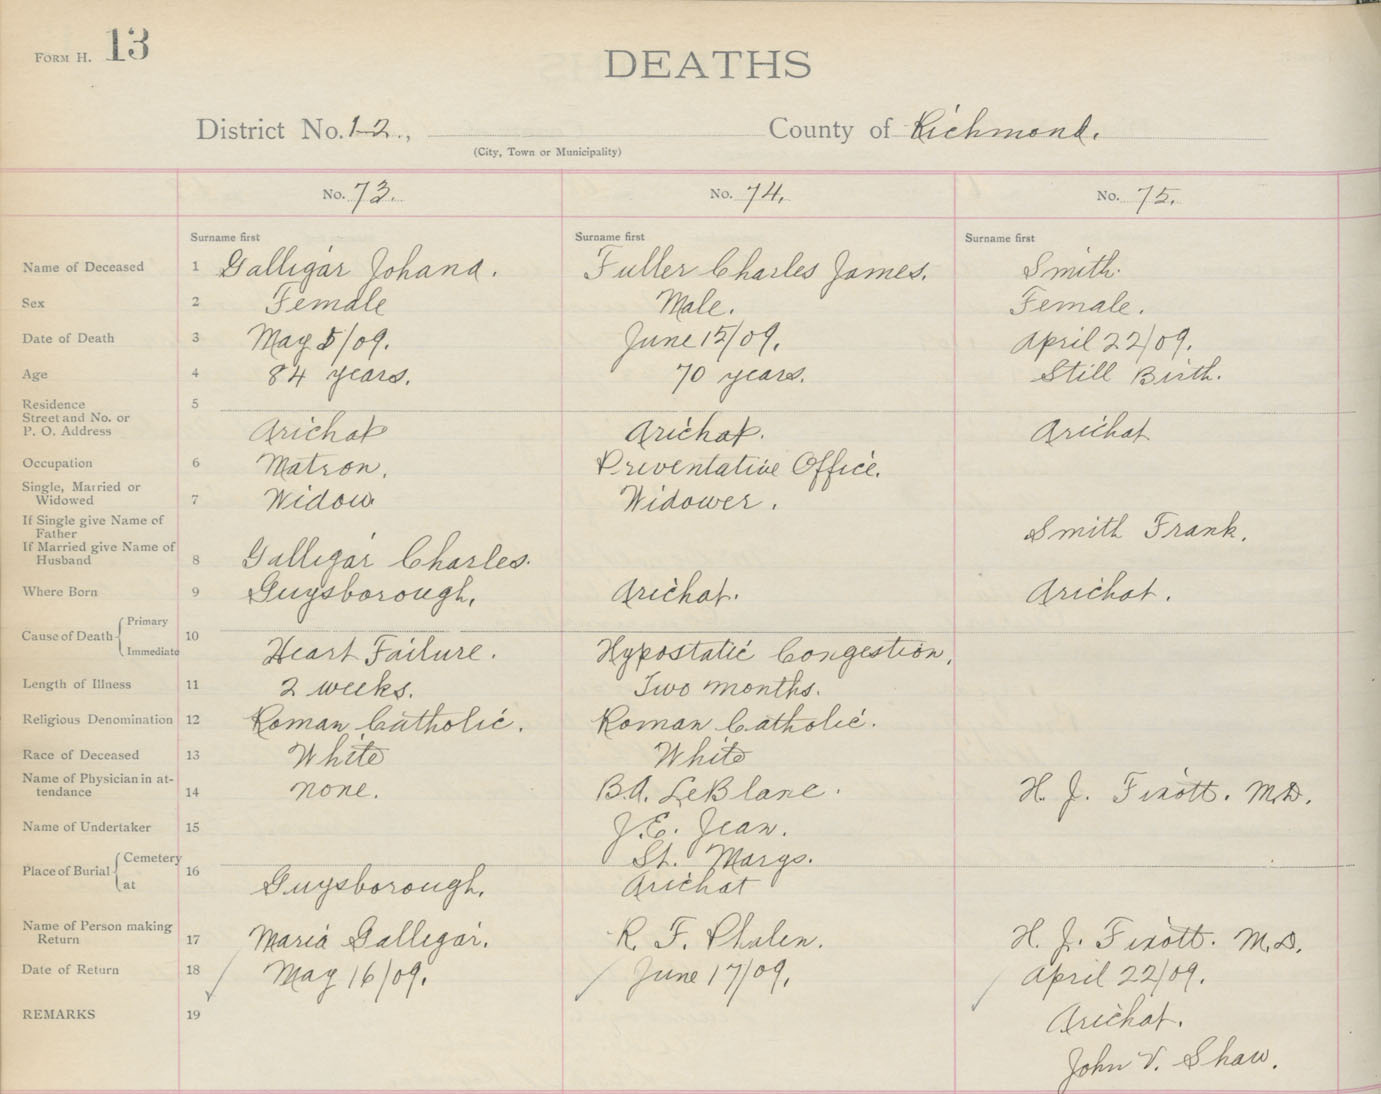 FORM H. 13
DEATHS
District No. 12., County of Richmond.
(City, Town or Municipality)
No. 73. No. 74. No. 75.
Surname first Surname first Surname first
Name of Deceased 1 Galligar Johana. Fuller Charles James. Smith.
Sex 2 Female Male. Female.
Date of Death 3 May 5/09. June 15/09. April 22/09.
Age 4 84 years. 70 years. Still Birth.
Residence 5
Street and No. or
P. O. Address Arichat Arichat. Arichat
Occupation 6 Matron. Preventative Office.
Single, Married or
Widowed 7 Widow Widower.
If Single give Name of
Father Smith Frank.
If Married give Name of
Husband 8 Galligar Charles.
Where Born 9 Guysborough. Arichat. Arichat.
Cause of Death { Primary 10
Immediate Heart Failure. Hypostatic Congestion.
Length of Illness 11 2 weeks. Two months.
Religious Denomination 12 Roman Catholic. Roman Catholic.
Race of Deceased 13 White White
Name of Physician in at-
tendance 14 none. B.A. LeBlanc. H. J. Fixott. M.D.
Name of Undertaker 15 J.E. Jean.
Place of Burial { Cemetery 16 St. Margs.
at Guysborough. Arichat
Name of Person making
Return 17 Maria Galligar. R. F. Phalen. H. J. Fixott. M.D.
Date of Return 18 May 16/09. June 17/09. April 22/09.
REMARKS 19 Arichat.
John V. Shaw.